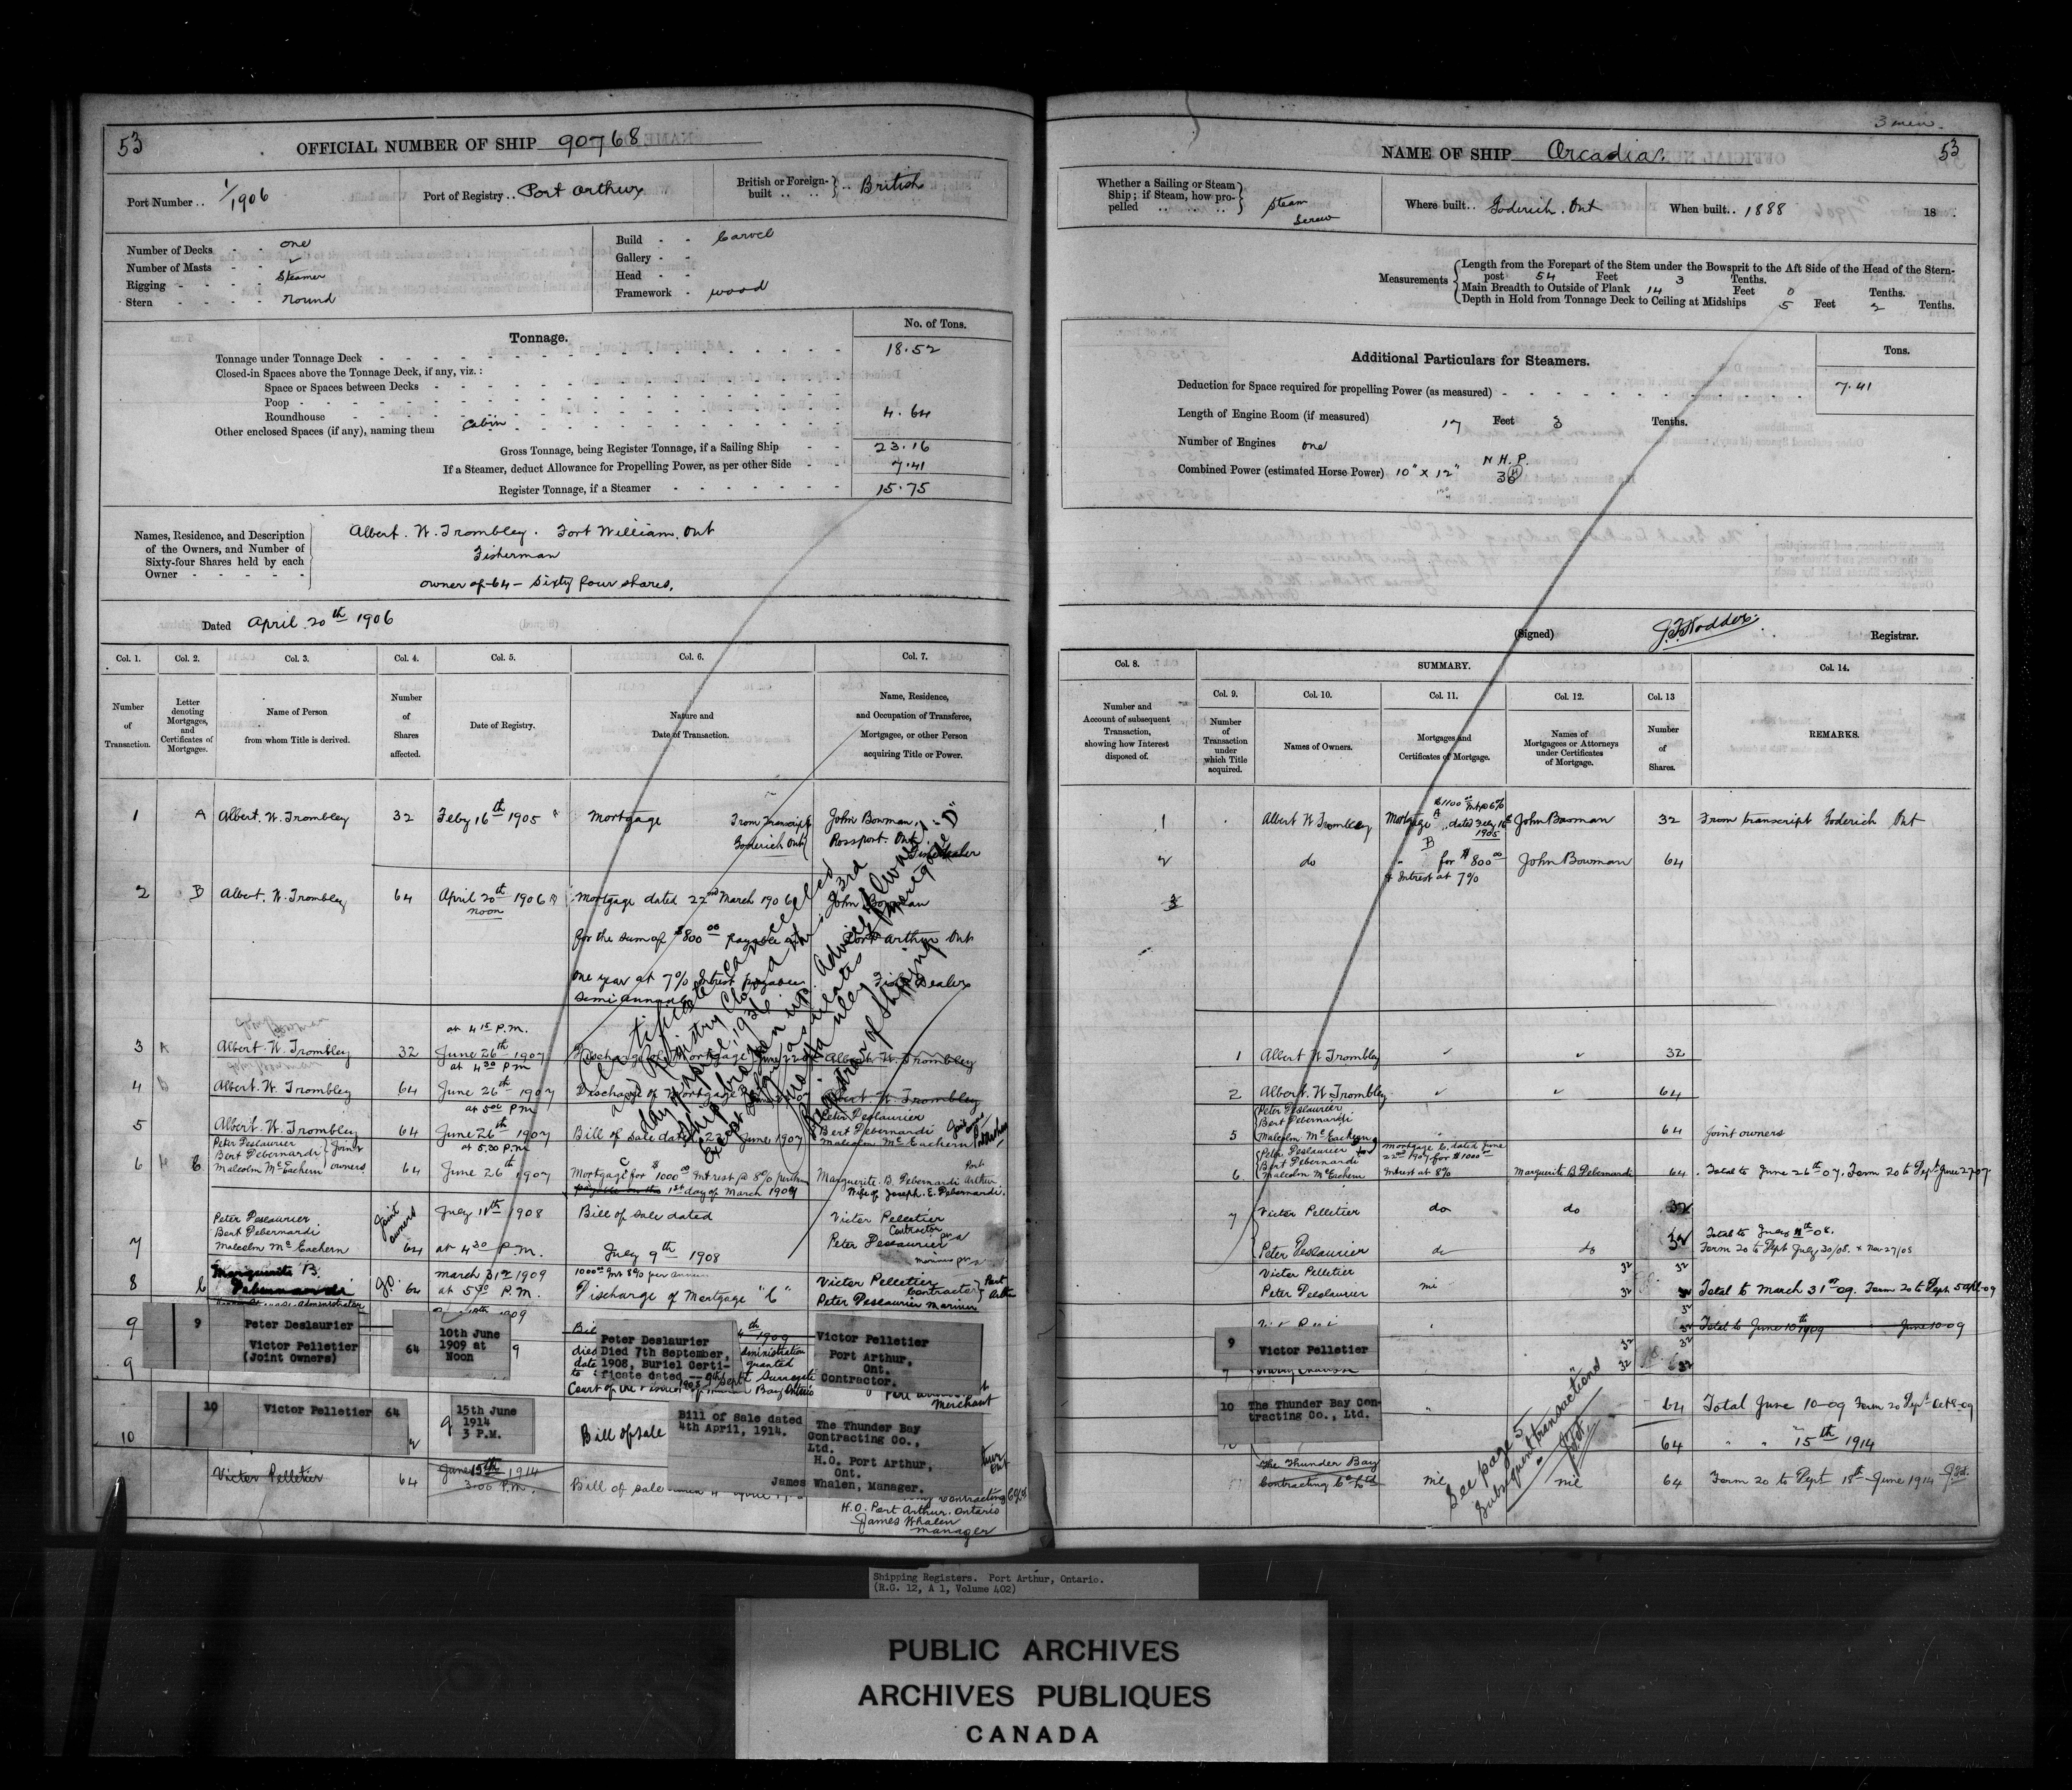 53
OFFICIAL NUMBER OF SHIP 90768
Port Number .. 1/1906
Port of Registry .. Port Arthur
British or Foreign-built .. .. British
Number of Decks - - one
Number of Masts - -
Rigging - - - - Steamer
Stern - - - - round
Build - - Carvel
Gallery - -
Head - -
Framework - wood
Tonnage.
No. of Tons.
Tonnage under Tonnage Deck 18.52
Closed-in Spaces above the Tonnage Deck, if any, viz.:
Space or Spaces between Decks
Poop
Roundhouse 4.64
Other enclosed Spaces (if any), naming them Cabin
Gross Tonnage, being Register Tonnage, if a Sailing Ship 23.16
If a Steamer, deduct Allowance for Propelling Power, as per other Side 7.41
Register Tonnage, if a Steamer 15.75
Names, Residence, and Description of the Owners, and Number of Sixty-four Shares held by each Owner
Albert. W. Trombley. Fort William. Ont
Fisherman
owner of -64- Sixty four shares.
Dated April 20th 1906
Col. 1. Col. 2. Col. 3. Col. 4. Col. 5. Col. 6. Col. 7.
Number of Transaction.
Letter denoting Mortgages, and Certificates of Mortgages.
Name of Person from whom Title is derived.
Number of Shares affected.
Date of Registry.
Nature and Date of Transaction.
Name, Residence, and Occupation of Transferee, Mortgagee, or other Person acquiring Title or Power.
1 A Albert. W. Trombley 32 Feby 16th 1905 Mortgage From Transcript Goderich Ont John Bowman, Rossport. Ont
2 B Albert. W. Trombley 64 April 20th 1906 noon Mortgage dated 22nd March 1906 John Bowman
for the sum of $800.00 payable Port Arthur Ont
one year at 7% Intrest payable Fish Dealer
Semi annual
John Bowman
at 4 15 P.M.
3 A Albert. W. Trombley 32 June 26th 1907 Discharge of Mortgage Albert W. Trombley
at 4 30 P.M
4 B Albert. W. Trombley 64 June 26th 1907 Discharge of Mortgage Albert. W. Trombley
at 5 00 P.M
5 Albert. W. Trombley 64 June 26th 1907 Bill of Sale dated 22 June 1907 Peter Deslaurier Bert Pebernardi Malcolm McEachern
at 5.30 P.M.
6 C Peter Deslaurier Bert Pebernardi Malcolm McEachern Joint owners 64 June 26th 1907 Mortgage C for $1000.00 Intrest @ 8% 1st day of March 1909 Marguerite. B. Pebernardi Port Arthur Wife of Joseph. E. Pebernardi.
7 Peter Deslaurier Bert Pebernardi Malcolm McEachern Joint owners 64 July 11th 1908 at 4 30 P.M. Bill of Sale dated July 9th 1908 Victor Pelletier Contractor Peter Deslaurier
8 C Marguerite B. Pebernardi 64 March 31st 1909 at 5 30 P.M. Discharge of Mortgage "C" Victor Pelletier Contractor Peter Deslaurier Mariner Port Arthur
9
9 Peter Deslaurier
Victor Pelletier
(Joint Owners)
64
10th June
1909 at
Noon
Peter Deslaurier
Died 7th September,
1908, Buriel Certi-
ficate dated
Victor Pelletier
Port Arthur,
Ont.
Contractor.
9
Merchant
10 Victor Pelletier 64
15th June
1914
3 P.M.
Bill of Sale
Bill of Sale dated
4th April, 1914.
The Thunder Bay
Contracting Co.,
Ltd.
H.O. Port Arthur,
Ont.
James Whalen, Manager.
10
Victor Pelletier 64 June 15th 1914 3.00 P.M. Bill of Sale
H.O. Port Arthur. Ontario
James Whalen
Manager
Certificate cancelled
and Registry Closed this 23rd
day of April, 1936
Ship broken up. Advice of Owner
except so far as relates to Mortgage "D"
Registrar of Shipping
3 men.
NAME OF SHIP Arcadia. 53
Whether a Sailing or Steam Ship; if Steam, how propelled Steam Screw
Where built.. Goderich. Ont
When built.. 1888 18
Measurements
Length from the Forepart of the Stem under the Bowsprit to the Aft Side of the Head of the Stern-
post 54 Feet 3 Tenths.
Main Breadth to Outside of Plank 14 Feet 0 Tenths.
Depth in Hold from Tonnage Deck to Ceiling at Midships 5 Feet 2 Tenths.
Additional Particulars for Steamers.
Tons.
Deduction for Space required for propelling Power (as measured) 7.41
Length of Engine Room (if measured) 17 Feet 3 Tenths.
Number of Engines one
N. H. P.
Combined Power (estimated Horse Power) 10" x 12"
(Signed) Registrar.
Col. 8. SUMMARY. Col. 14.
Col. 9. Col. 10. Col. 11. Col. 12. Col. 13
Number and Account of subsequent Transaction, showing how Interest disposed of.
Number of Transaction under which Title acquired.
Names of Owners.
Mortgages and Certificates of Mortgage.
Names of Mortgagees or Attorneys under Certificates of Mortgage.
Number of Shares.
REMARKS.
1 Albert W Trombley Mortgage A $1100.00 Int @ 6% dated Feby 16th 1905 John Bowman 32 From transcript Goderich Ont
2 do " B for $800.00 & Intrest at 7% John Bowman 64
3
1 Albert W Trombley 32
2 Albert. W. Trombley 64
5 Peter Deslaurier Bert Pebernardi Malcolm McEachern 64 Joint owners
6 Peter Deslaurier Bert Pebernardi Malcolm McEachern Mortgage C. dated June 22nd 1907 for $1000.00 Intrest at 8% Marguerite B. Pebernardi 64 Total to June 26th 07. Form 20 to Dept June 27.07
7 Victor Pelletier do do 32
Peter Deslaurier do do 32 Total to July 11th 08.
Form 20 to Dept July 30/08. & Nov 27/08
Victor Pelletier 32
Peter Deslaurier nil 32 Total to March 31st 09. Form 20 to Dept. 5 Apl. 09
Total to June 10th 1909 June 10-09
9 Victor Pelletier
10 The Thunder Bay Con-
tracting Co., Ltd.
64 Total June 10-09 Form 20 Dept Oct 8-09
64 " " 15th 1914
The Thunder Bay
Contracting Co Ltd nil nil 64 Form 20 to Dept 18th June 1914
See page 5
Subsequent transactions
Shipping Registers. Port Arthur, Ontario.
(R.G. 12, A 1, Volume 402)
PUBLIC ARCHIVES
ARCHIVES PUBLIQUES
CANADA